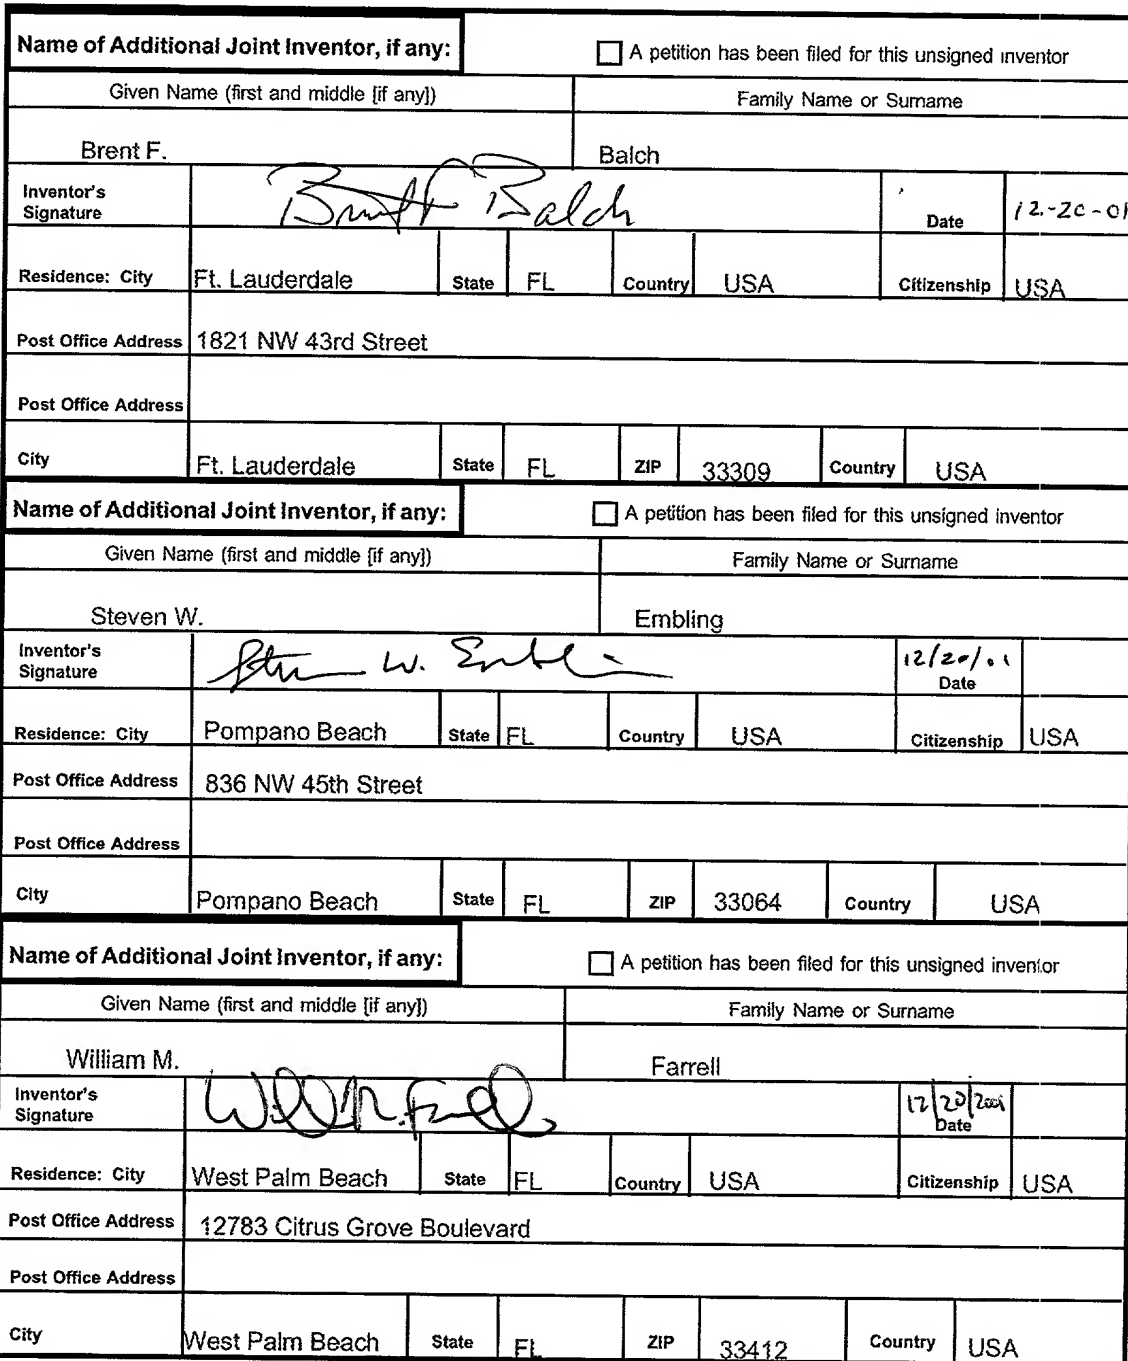 Name of Additional Joint Inventor, if any: A petition has been filed for this unsigned inventor
Given Name (first and middle [if any]) Family Name or Surname
Brent F. Balch
Inventor's Signature Brent F Balch Date 12-20-01
Residence: City Ft. Lauderdale State FL Country USA Citizenship USA
Post Office Address 1821 NW 43rd Street
Post Office Address
City Ft. Lauderdale State FL ZIP 33309 Country USA
Name of Additional Joint Inventor, if any: A petition has been filed for this unsigned inventor
Given Name (first and middle [if any]) Family Name or Surname
Steven W. Embling
Inventor's Signature Steven W. Embling 12/20/01 Date
Residence: City Pompano Beach State FL Country USA Citizenship USA
Post Office Address 836 NW 45th Street
Post Office Address
City Pompano Beach State FL ZIP 33064 Country USA
Name of Additional Joint Inventor, if any: A petition has been filed for this unsigned inventor
Given Name (first and middle [if any]) Family Name or Surname
William M. Farrell
Inventor's Signature Will M. Farrell 12/20/2001 Date
Residence: City West Palm Beach State FL Country USA Citizenship USA
Post Office Address 12783 Citrus Grove Boulevard
Post Office Address
City West Palm Beach State FL ZIP 33412 Country USA